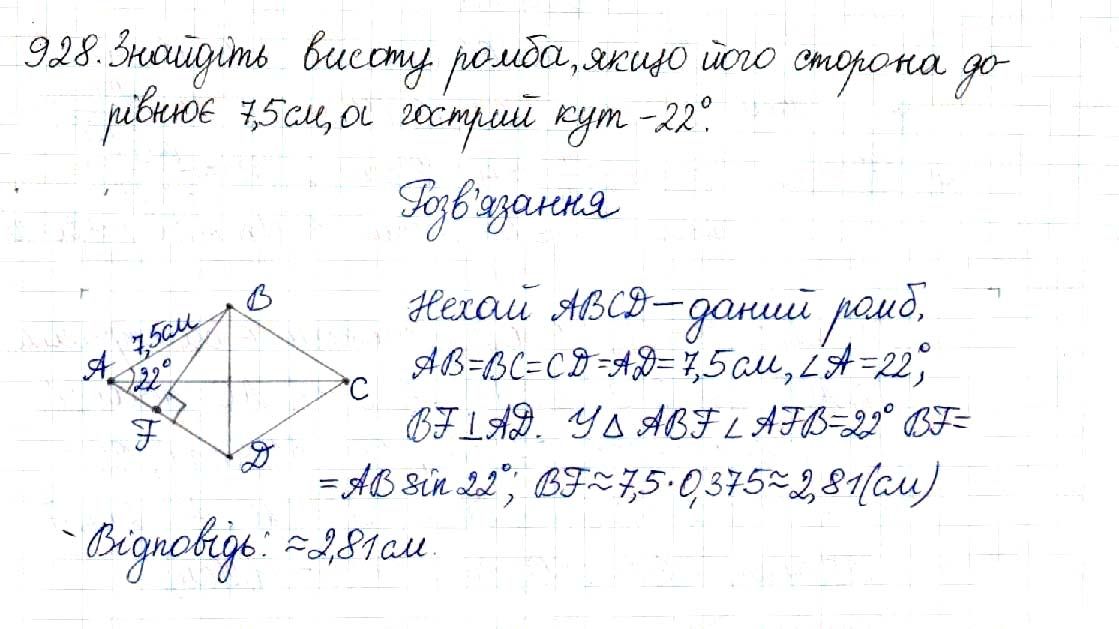 928. Знайдіть висоту ромба, якщо його сторона до-
рівнює 7,5 см, а гострий кут - 22°.
Розв'язання
B
7,5 см
A
22°
C
F
D
Нехай ABCD — даний ромб,
AB=BC=CD=AD=7,5 см, ∠A=22°,
BF⊥AD. У △ ABF ∠ AFB=22° BF=
=AB sin 22°; BF≈7,5·0,375≈2,81(см)
Відповідь: ≈2,81 см.